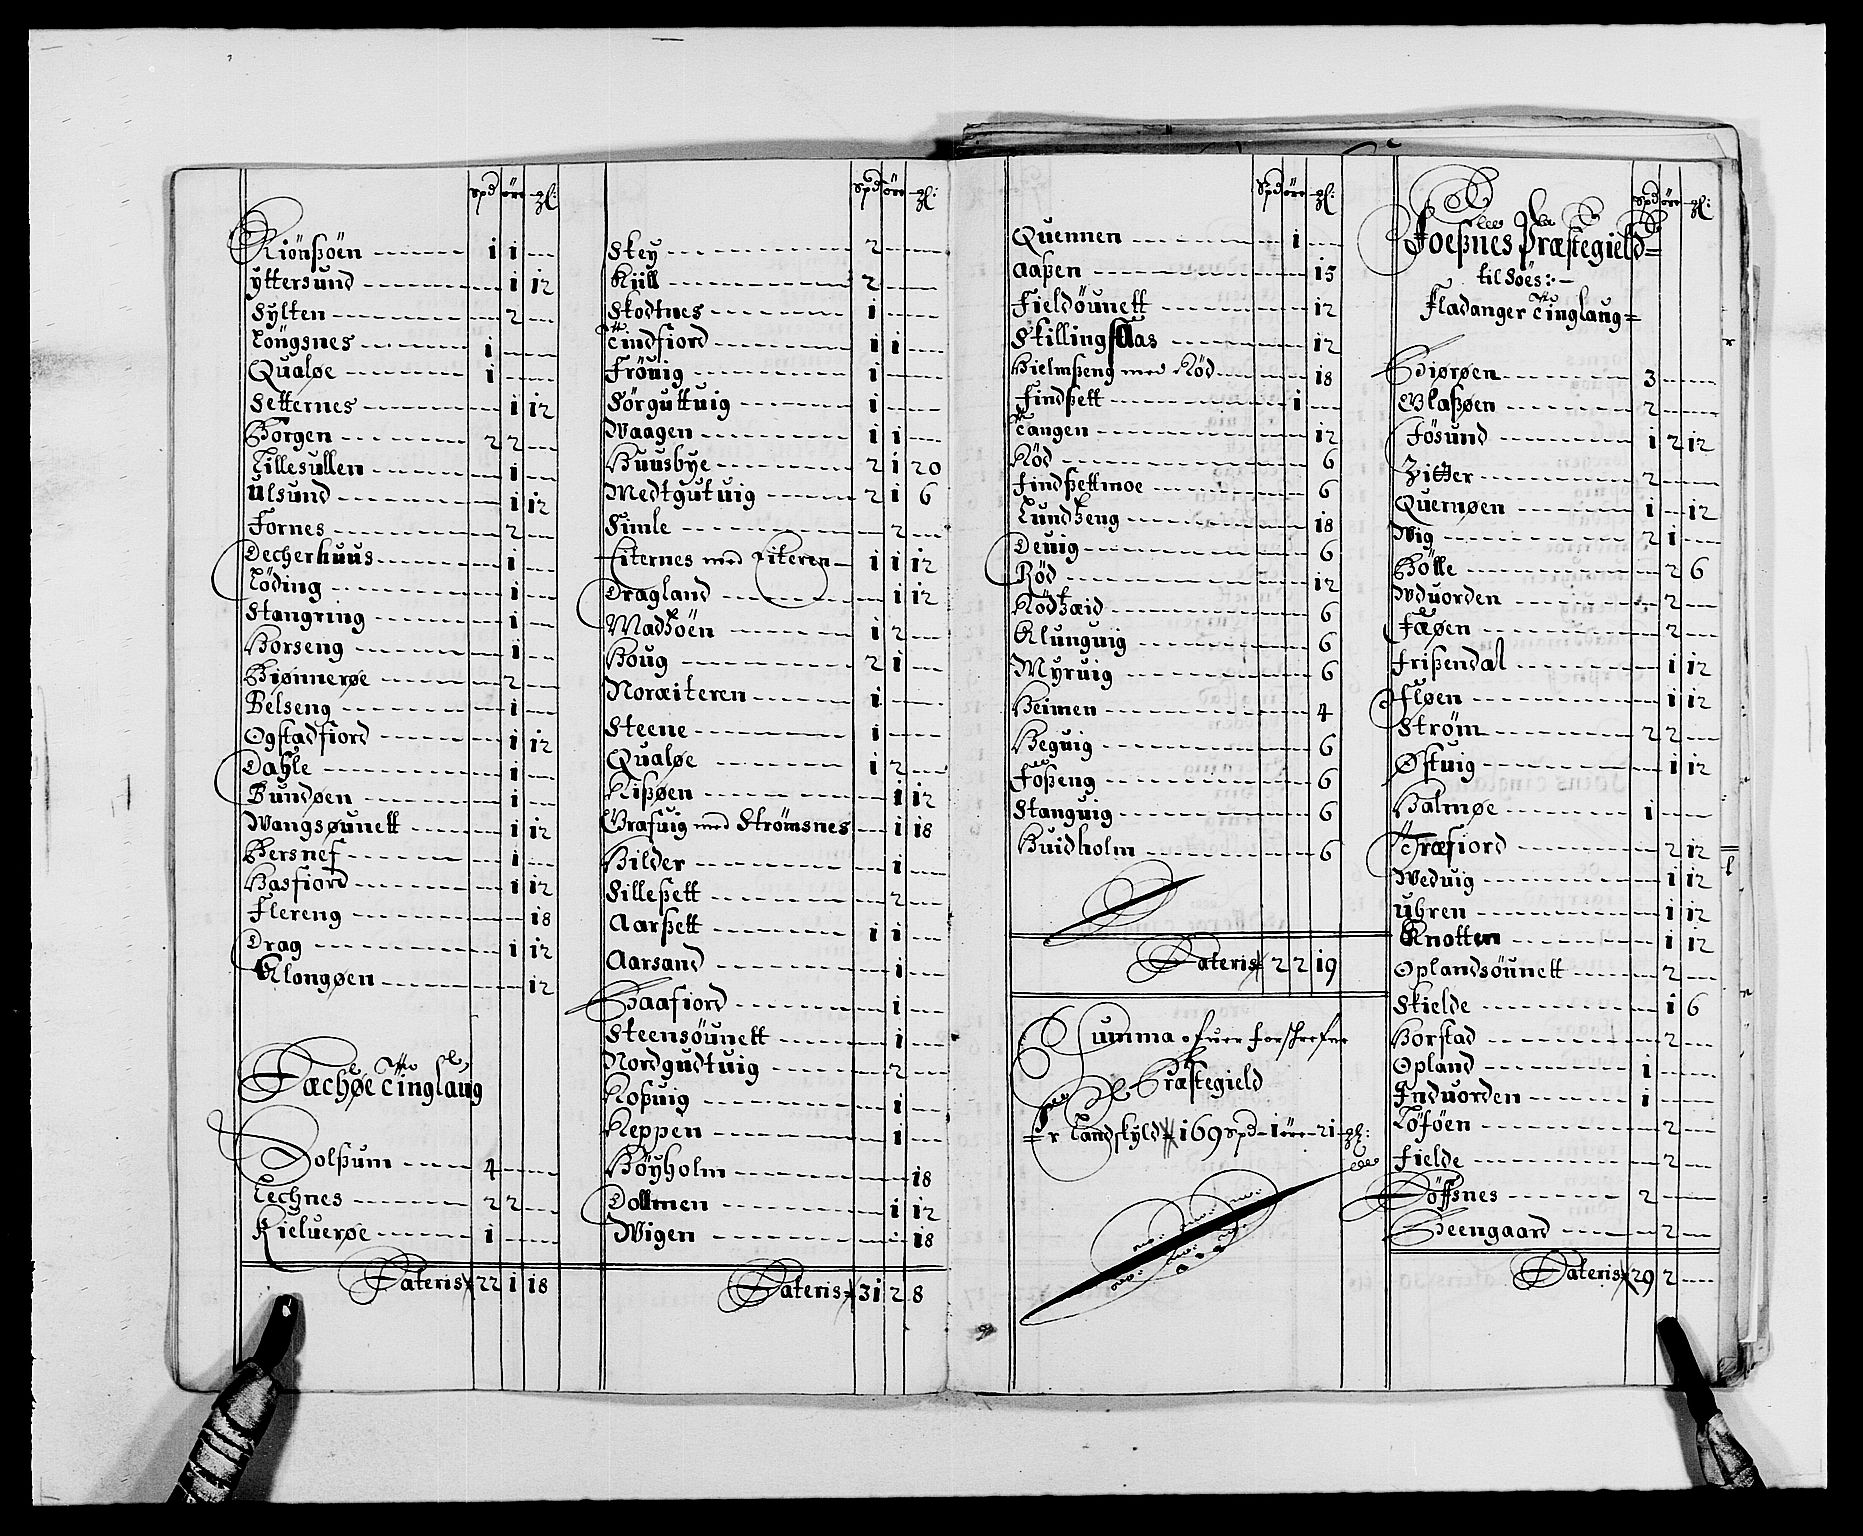 Spd öre gl:
Kiönßöen 1 1
yttersund 1 12
Sylten 2
Löngsnes 1
Qualøe 1
Setternes 1 12
Borgen 2 2
Lillesullen 1
Ulsund 1 12
Fornes 2
Decherhuus 1
Löding 1
Stangring 1
Horseng 1
Biønnerøe 2
Belseng 1
Ogstadfiord 1 12
Dahle 1
Bundøen 1
Wangsøunett 1 12
Hersnef 1
Hasfiord 1 12
Flereng 18
Drag 1 12
Klongøen 12
Fæchøe Tinglaug
Solßum 4
Lechnes 2 2
Kieluerøe 1
Lateris 22 1 18
Spd öre gl:
Skey 2
Kiill 2
Skodtnes 1
Tindfiord 1 1
Fröuig 1
Sörguttuig 1
Waagen 1 1
Huusbye 2 1 20
Medtgutuig 2 1 6
Simle 2
Eiternes med Eiteren 1 1 12
Dragland 1 12
Madßöen 1 2
Houg 2 1
Noræiteren 1
Steene 1
Qualøe 1 2
Kißøen 1 12
Grafuig med Strömsnes 1 18
Hilder 1
Silleßett 2
Aarßett 1 1
Aarsand 1
Haafiord 1
Steensöunett 1
Nordgudtuig 2
Koßuig 1
Reppen 1
Höyholm 18
Dollmen 1 12
Wigen 18
Lateris 31 2 8
Spd öre gl:
Quennen 1
Aaßen 15
Fieldöunett 12
Skillingsaas 12
Hielmßeng med Röd 18
Findßett 1
Tangen 12
Röd 6
Findßettmoe 6
Lundßeng 18
Deuig 6
Röd 12
Rödßæid 6
Klunguig 6
Myruig 6
Heimen 4
Heguig 6
Foßeng 6
Stanguig 6
Huidholm 6
Lateris 2 2 19
Summa ofuer forschrefne
Præstegield
er Landskyld 169 spd 1 öre 21 gl:
Spd öre gl:
Foeßnes Præstegield
til Söes:
Fladanger Tinglaug
Biørøen 3
Glaßøen 2
Jösund 1 2 12
Zitter 2
Quernøen 1 12
Wig 2 1
Bölle 2 6
Wduorden 2
Fæøen 2
Frißendal 1 12
Fløen 1 12
Ström 2 2
Østuig 1 12
Halmøe 1
Træfiord 2 12
Weduig 1 12
Uhren 1 12
Knotten 1 12
Oplandsöunett 2
Skielde 1 6
Horstad 2
Opland 1
Induorden 1
Löföen 2
Fielde 2
Döffsnes 2
Seengaard 2
Lateris 29 2